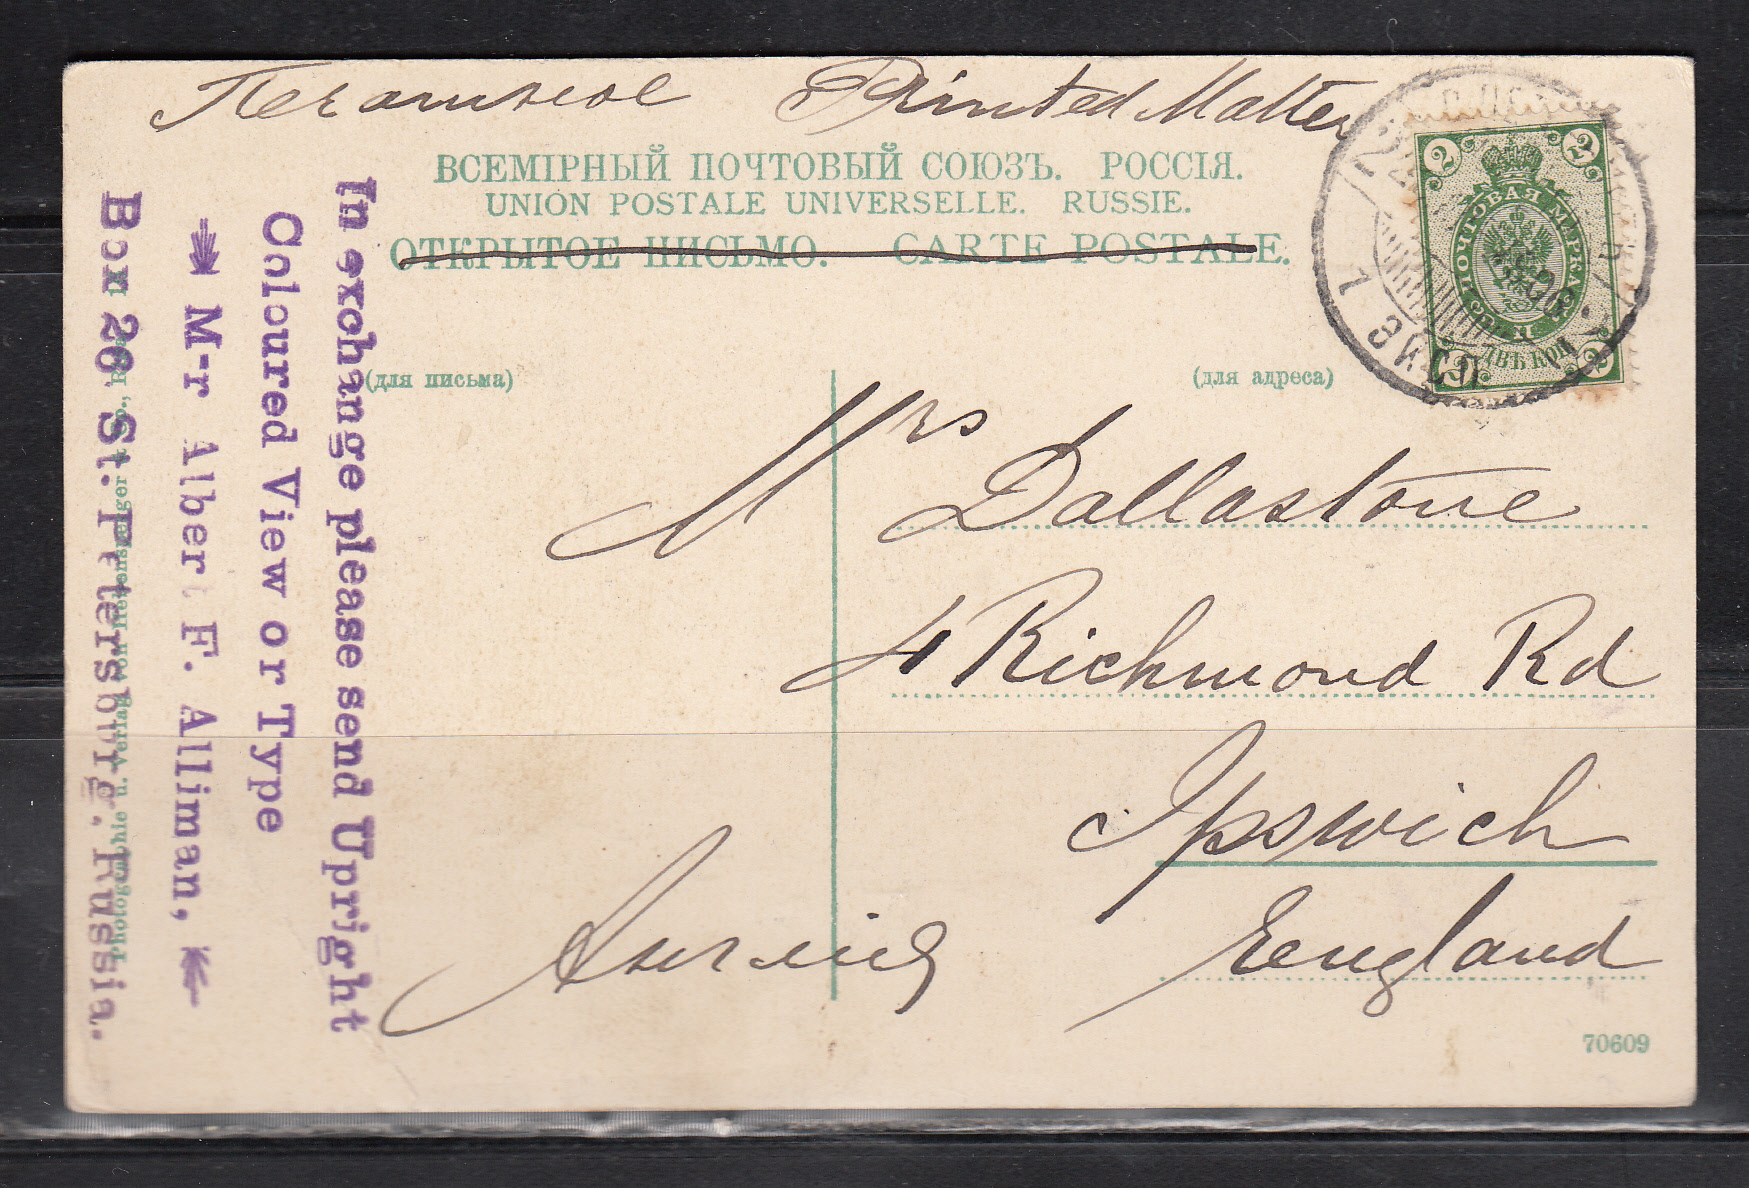 Печатное Printed Matter
ВСЕМІРНЫЙ ПОЧТОВЫЙ СОЮЗЪ. РОССІЯ.
UNION POSTALE UNIVERSELLE. RUSSIE.
ОТКРЫТОЕ ПИСЬМО. CARTE POSTALE.
(для письма) (для адреса)
2 2
ПОЧТОВАЯ МАРКА
2 ДВѢ КОП 2
Mrs Dallastone
4 Richmond Rd
Ipswich
England
Англія
70609
In exchange please send Upright
Coloured View or Type
M-r Albert F. Alliman,
Box 26. St. Petersburg. Russia.
Photographie u. Verlag von